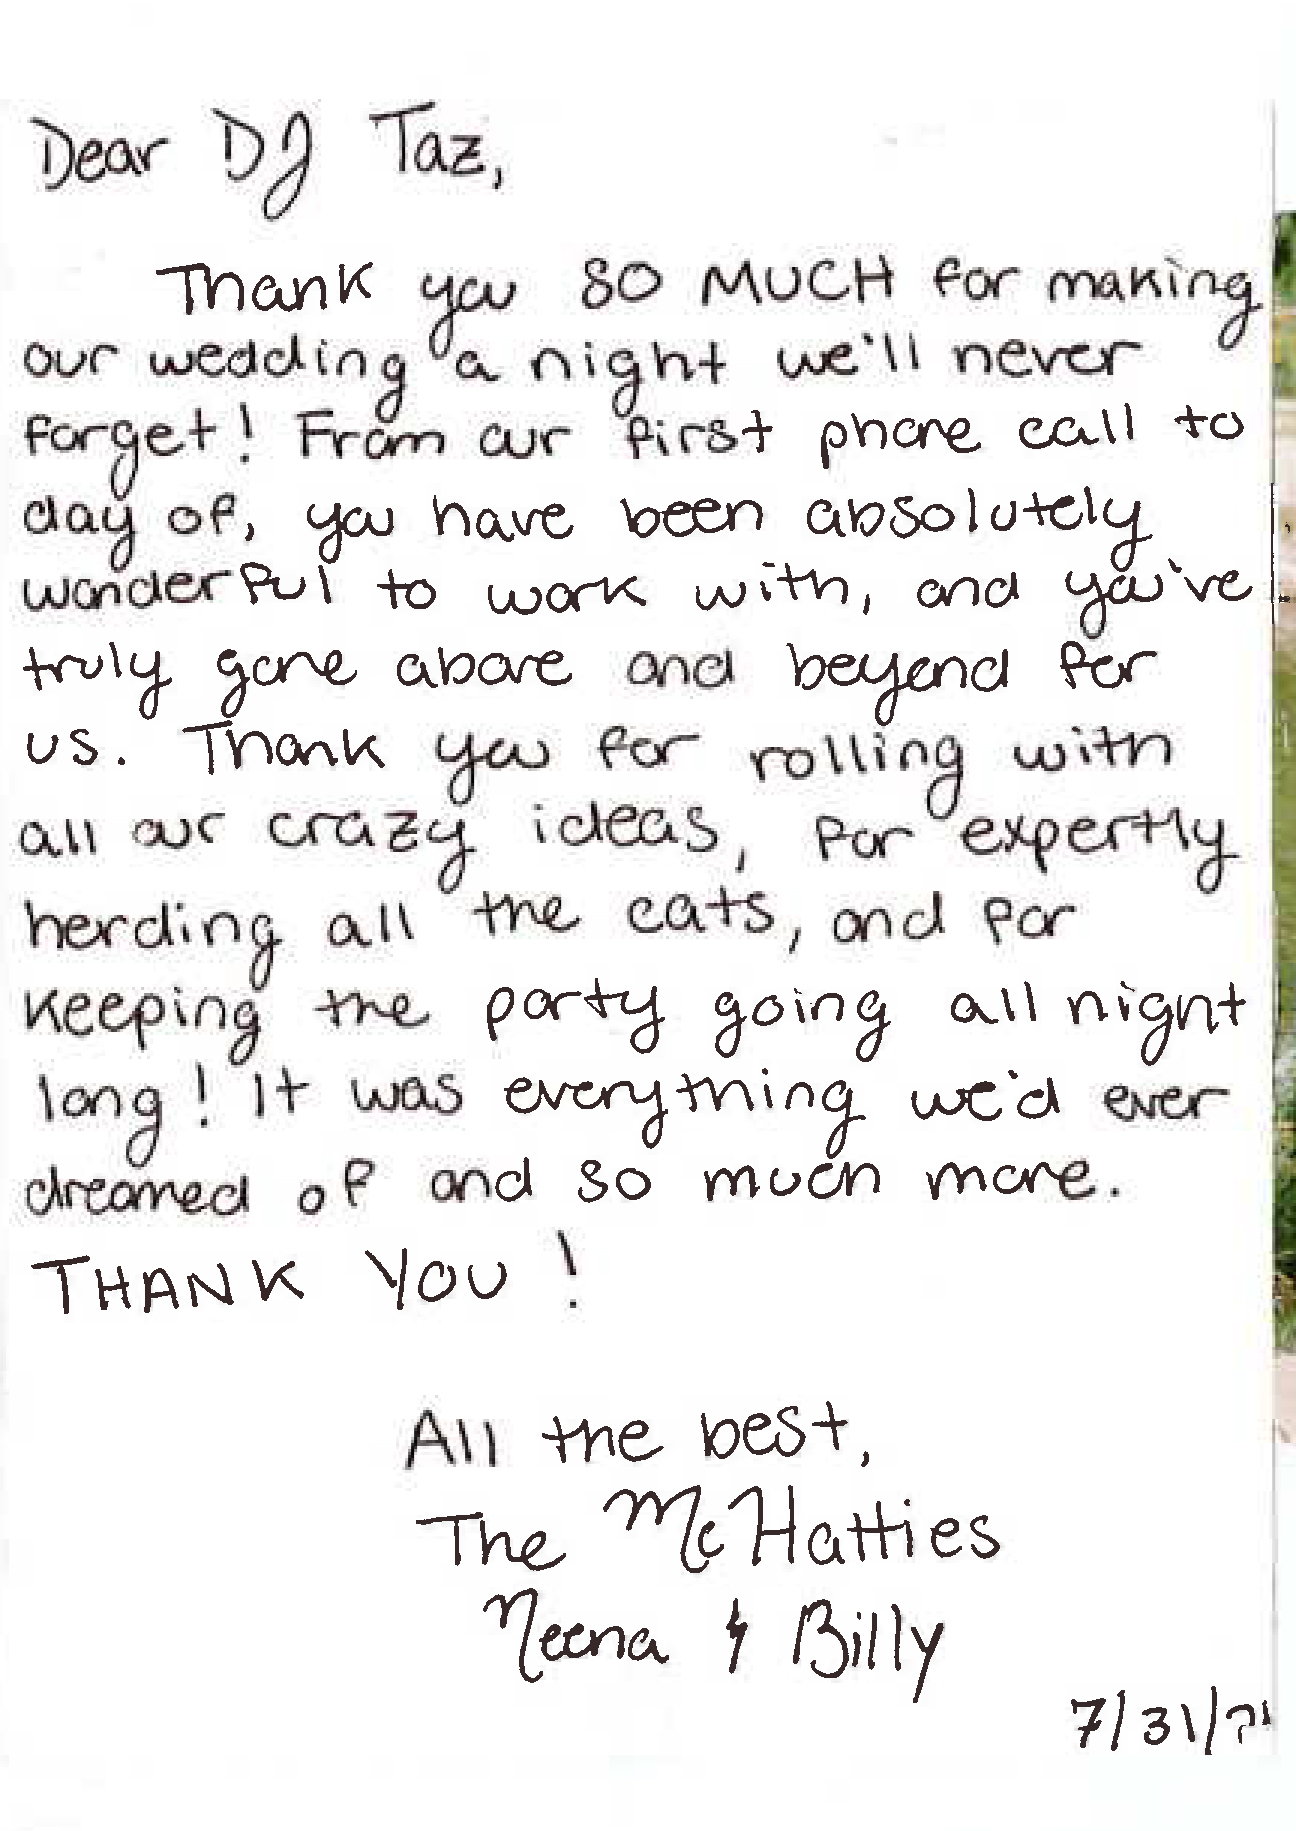 Dear DJ Taz,
Thank you SO MUCH for making
our wedding a night we'll never
forget! From our first phone call to
day of, you have been absolutely
wonderful to work with, and you've
truly gone above and beyond for
us. Thank you for rolling with
all our crazy ideas, for expertly
herding all the cats, and for
keeping the party going all night
long! It was everything we'd ever
dreamed of and so much more.
THANK YOU!
All the best,
The McHatties
Neena & Billy
7/31/